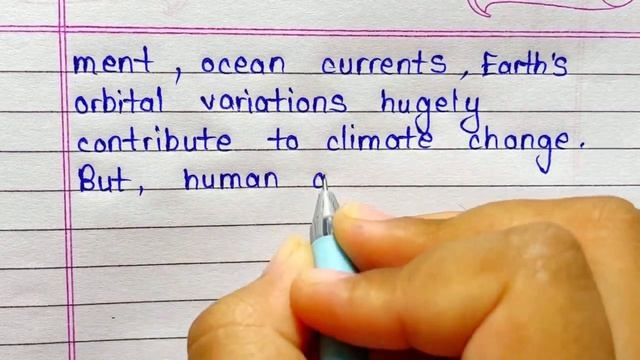 ment, ocean currents, Earth's
orbital variations hugely
contribute to climate change.
But, human a